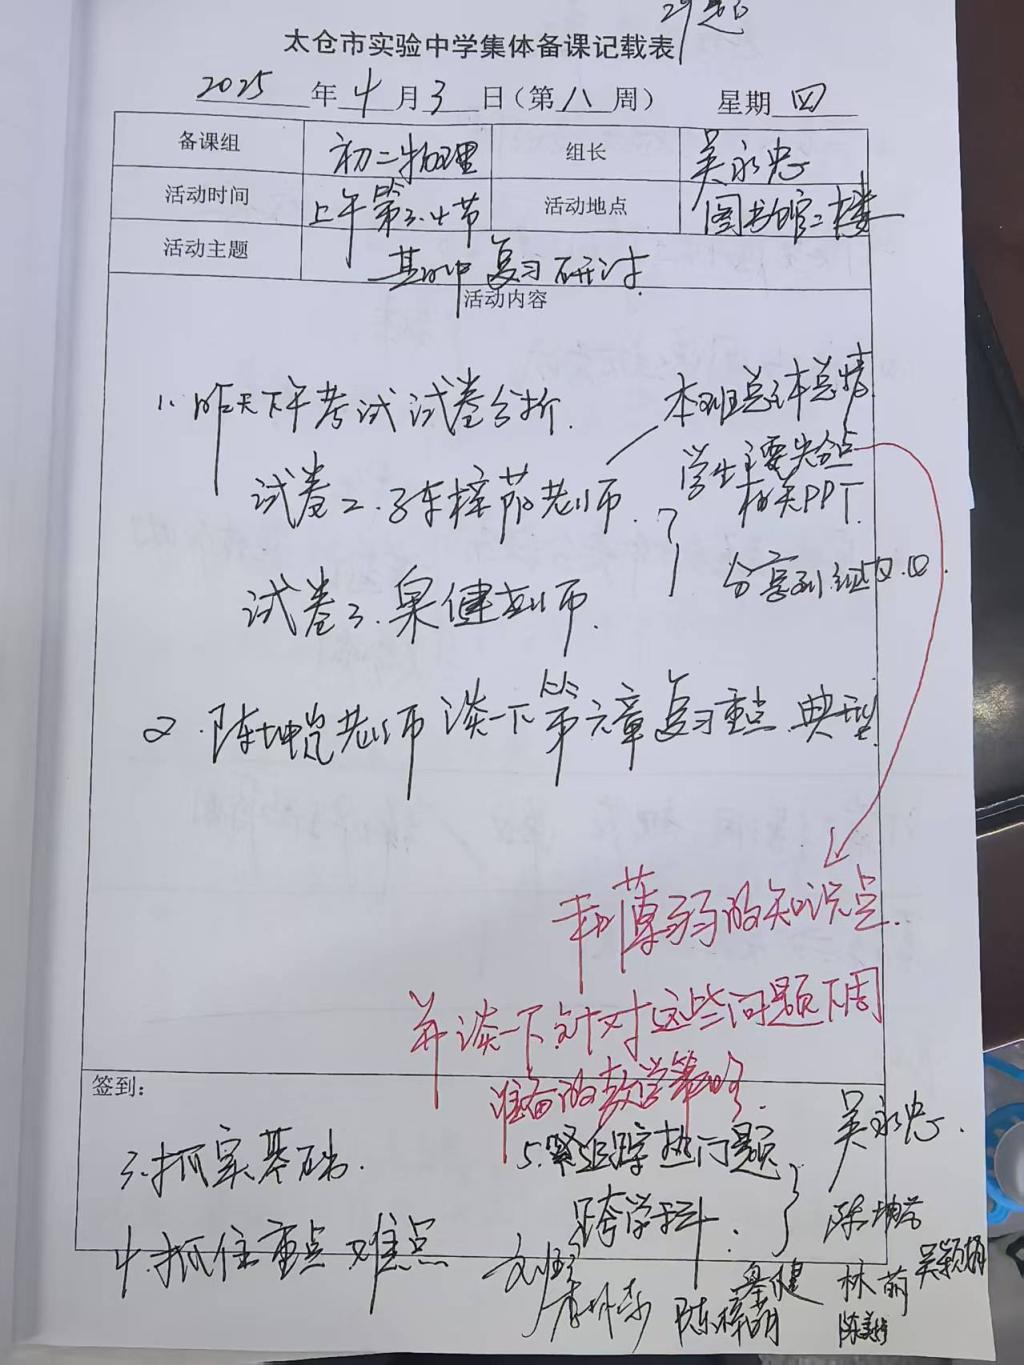 太仓市实验中学集体备课记载表
2025年4月3日(第八周) 星期四
备课组 初二物理 组长 吴永忠
活动时间 上午第三.四节 活动地点 图书馆二楼
活动主题 期中复习研讨
活动内容
1. 昨天下午考试试卷分析.
学生主要失分点
相关PPT.
试卷2. 老师.
分享到组内.
试卷3. 健老师.
2. 陈坤 老师谈一下第六章复习重点 典型
薄弱的知识点.
并谈一下针对这些问题下周
准备的教学策略.
签到:
3.抓实基础.
5.紧跟踪热门问题
跨学科.
吴永忠.
4.抓住重点难点
林萌